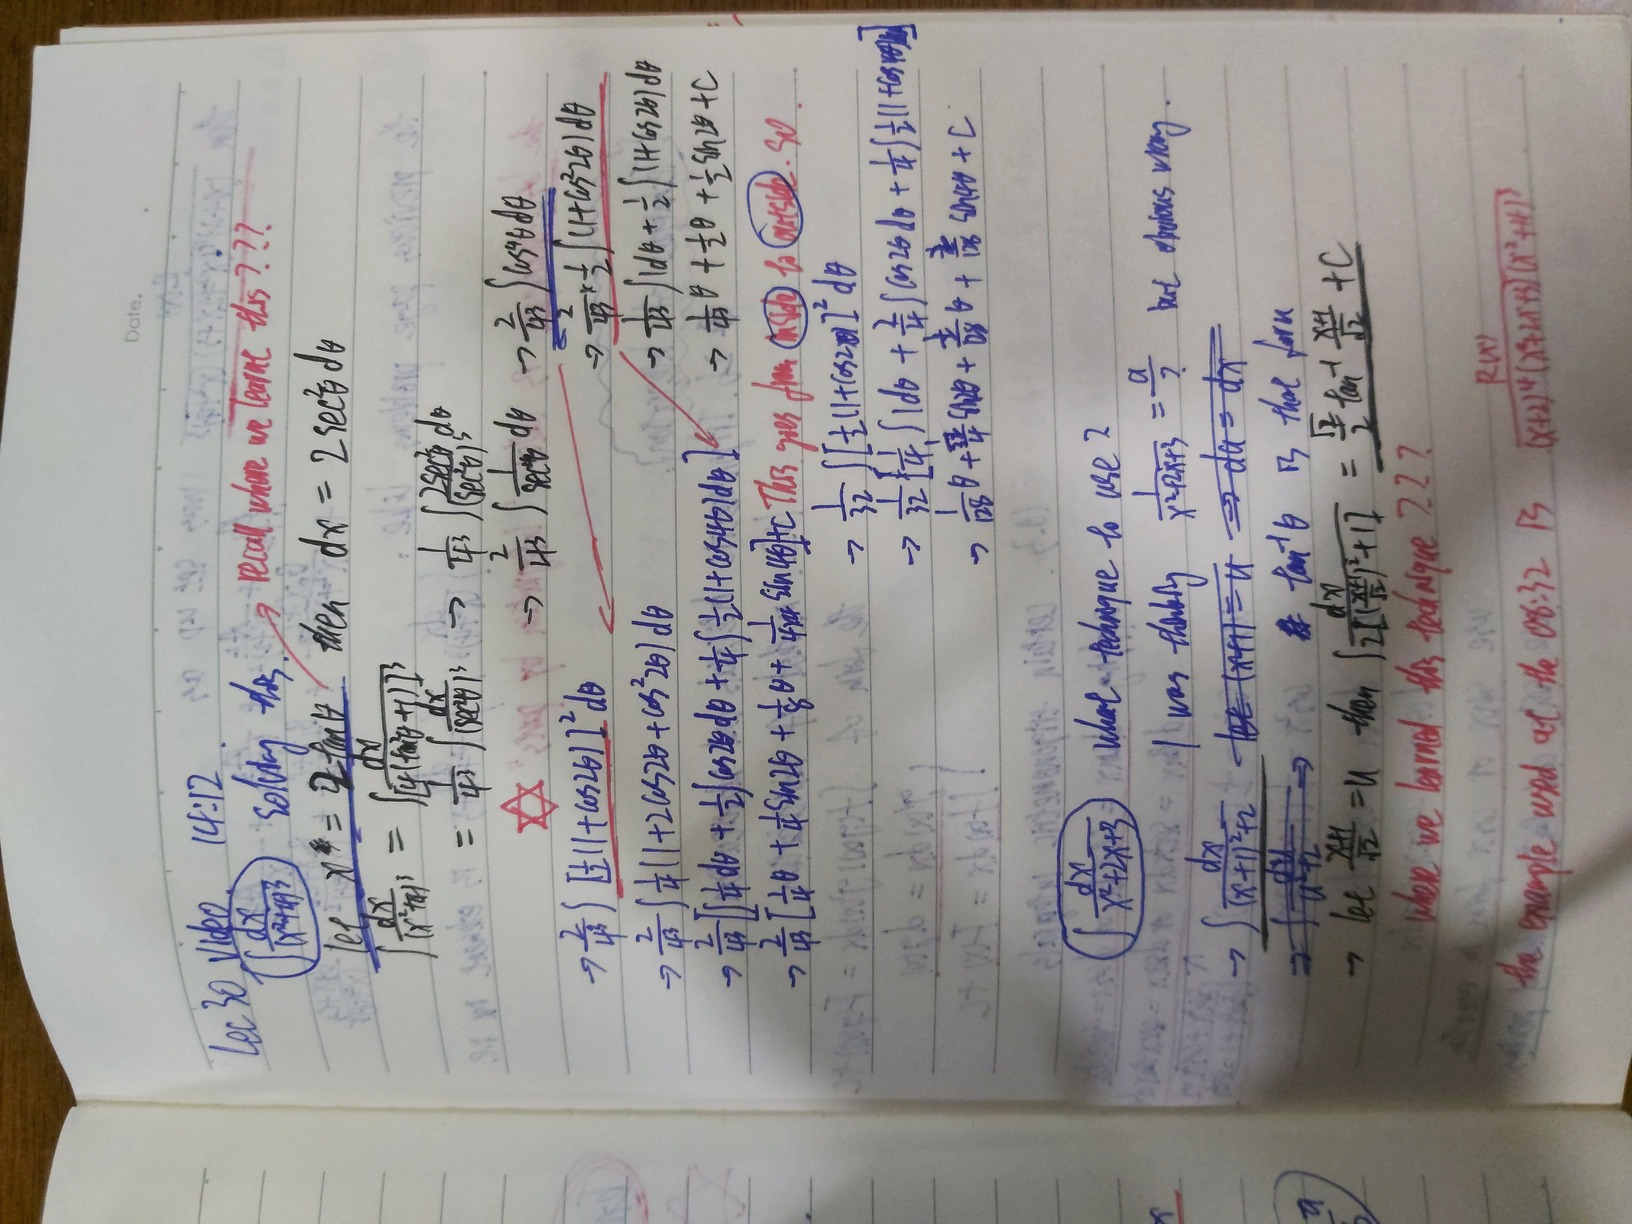 Date.
Lec 30 video. 14:12.
∫ dx/(x²+4)³ solving this. → recall where we learnt this???
let x = 2tanθ then dx = 2sec²θ dθ
∫ dx/(x²+4)³ = ∫ dx/[4(tan²θ+1)]³
= 1/4³ ∫ dx/(sec²θ)³ → 1/4³ ∫ 2sec²θ/(sec²θ)³ dθ
→ 2/4³ ∫ 1/sec⁴θ dθ → 2/4³ ∫ cos⁴θ dθ
→ 2/4³ ∫ [½(1+cos2θ)]² dθ
→ 2/4³ × ½ ∫ (1+cos²2θ) dθ
→ 2/4³ ∫ ¼(1+2cos2θ+cos²2θ) dθ
→ 1/4³ ∫ 1dθ + ½ ∫ (1+cos2θ) dθ
→ 2/4³ [∫ ¼ dθ + ½ ∫ cos2θ dθ + ¼ ∫ ½(1+cos4θ) dθ]
→ 1/4³ θ + ½θ + ½ sin2θ + C
→ 2/4³ [¼θ + ¼ sin2θ + ⅛θ + 1/4×4 sin4θ] + C This goes from inside to outside. so.
→ 1/32 ∫ [½(1+cos2θ)]² dθ
→ 1/32 [¼ ∫ 1dθ + 2/4 ∫ cos2θ dθ + ¼ ∫ ½(1+cos4θ)
→ 1/128 θ + sin2θ + θ + sin4θ + C
∫ dx/x²+2x+3 what technique to use?
I was thinking 1/x²+2x+3 = a/? but obvious wrong.
→ ∫ dx/(x+1)²+2 let (x+1) = u → du = dx
→ ∫ du/u²+2 → tan⁻¹θ is that form
→ let x+1/√2 = u then ∫ dx/2[(x+1/√2)²+1] = √2/2 tan⁻¹ x+1/√2 + C
where we learned this technique???
the example used at the 08:32 is R(x)/(x+2)⁴(x²+2x+3)(x²+4)³